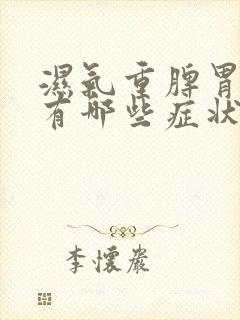 濕氣重脾胃
有哪些症狀
李懷巖